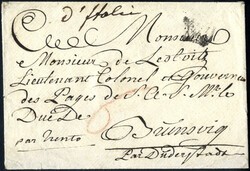 d'Italie
Monsieur
Monsieur de
Lieutenant Colonel et Gouverneu
des Pages de S. A. S. M. le
Duc De
Brunsvig
par Trento
Par Duderstadt